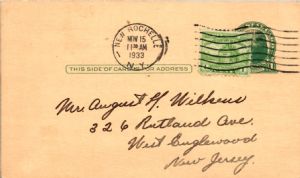 NEW ROCHELLE
NOV 15
11 30 AM
1933
N.Y.
THIS SIDE OF CARD IS FOR ADDRESS
Mr. August H. Wilkens
326 Rutland Ave.
West Englewood
New Jersey.